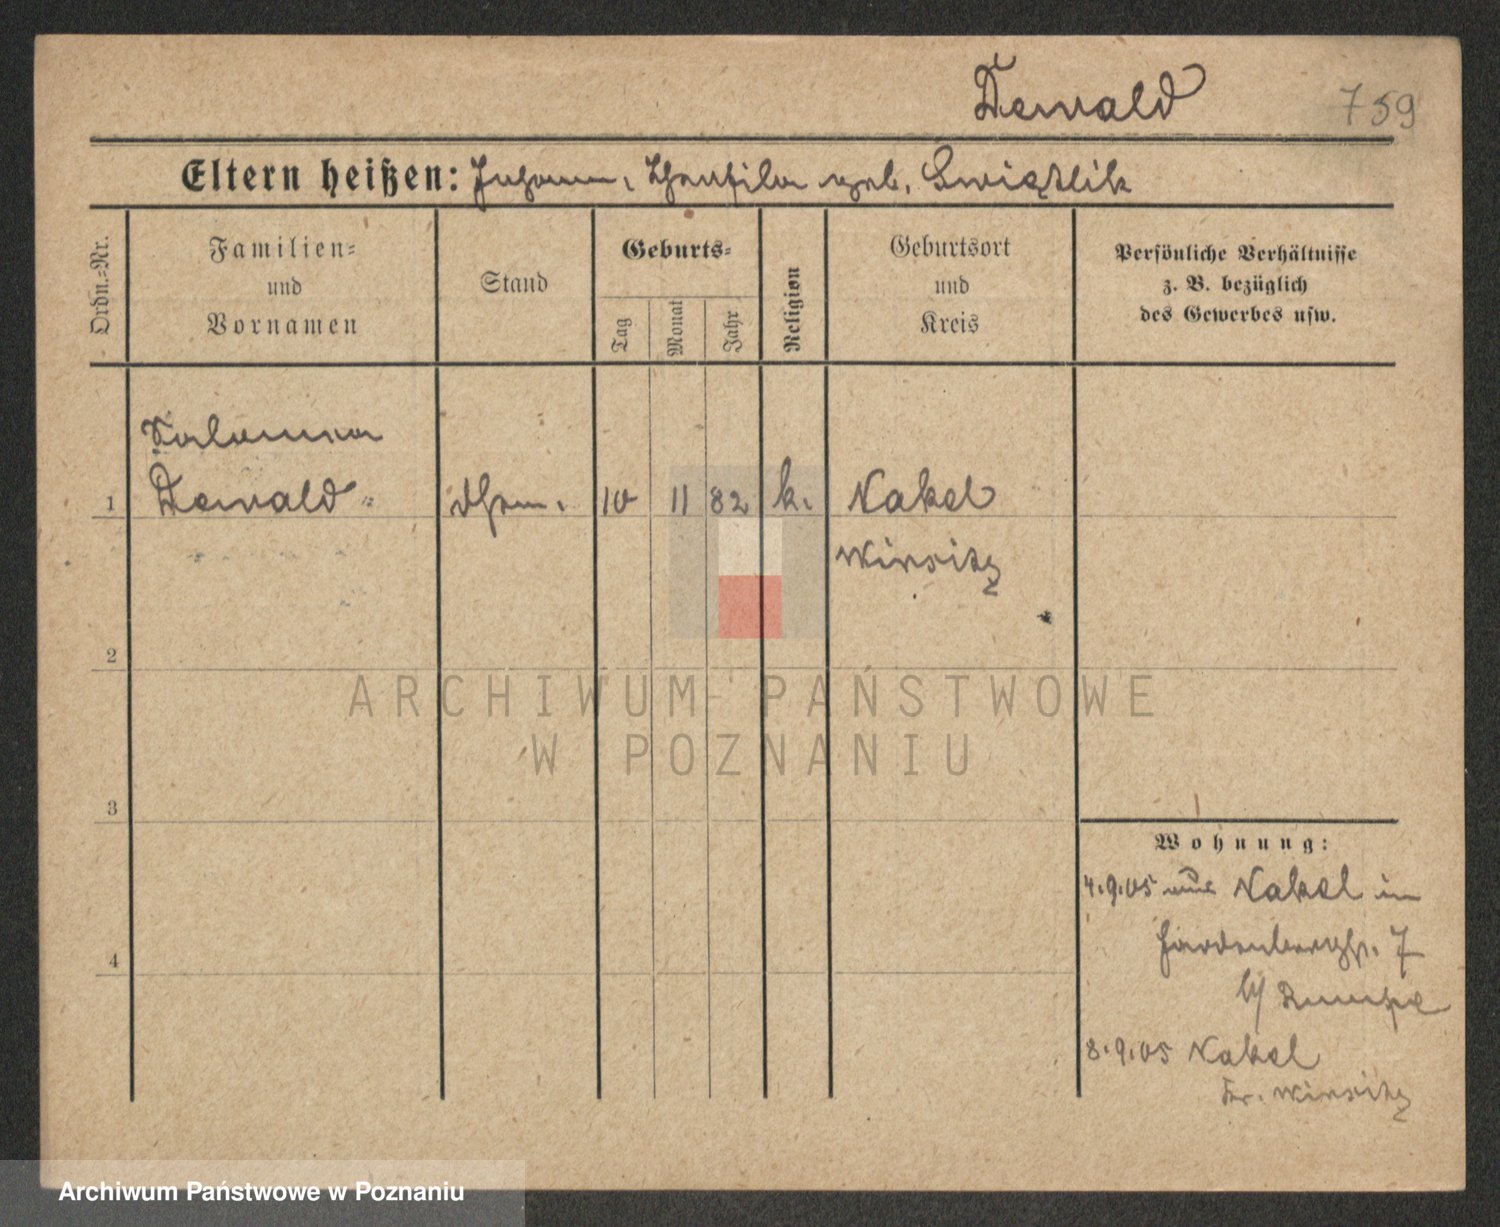 Dewald
759
Eltern heißen: Johann, Theofila geb. Swiątlik
Ordn.-Nr.
Familien-
und
Vornamen
Stand
Geburts-
Tag
Monat
Jahr
Religion
Geburtsort
und
Kreis
Persönliche Verhältnisse
z. B. bezüglich
des Gewerbes usw.
Salomea
1 Dewald 10 11 82 k. Nakel
Wirsitz
2
ARCHIWUM PAŃSTWOWE
W POZNANIU
3
Wohnung:
4.9.05 aus Nakel in
Hardenbergstr. 7
4
b/
8.9.05 Nakel
Kr. Wirsitz
Archiwum Państwowe w Poznaniu